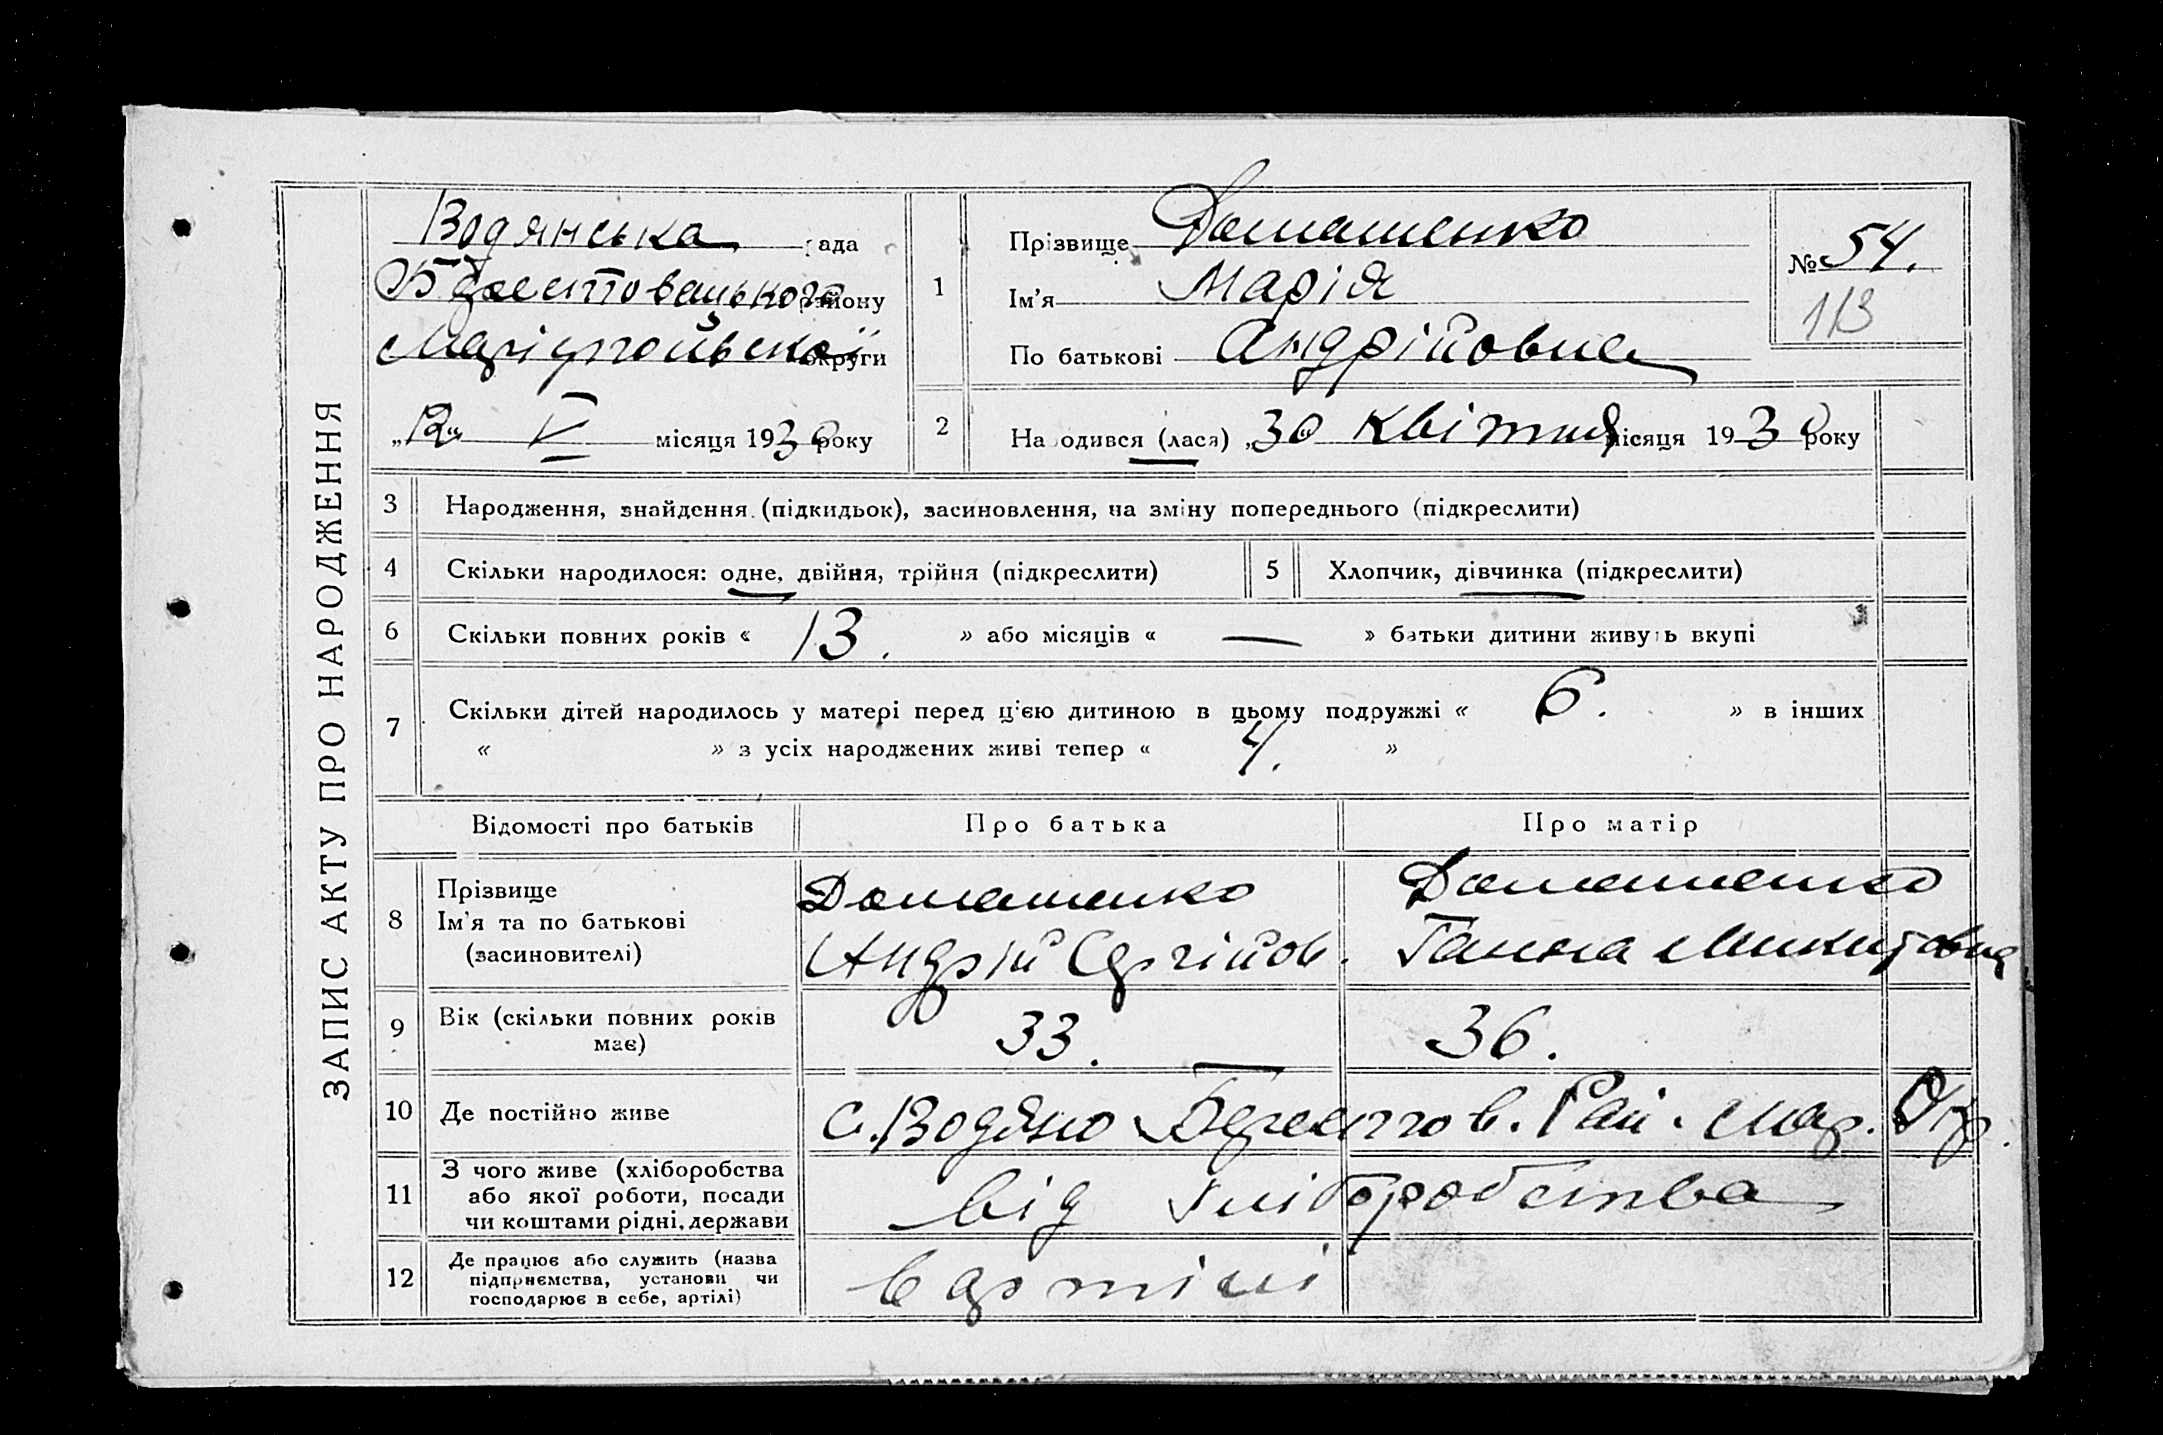 ЗАПИС АКТУ ПРО НАРОДЖЕННЯ
Водянська рада
Берестовецького району
Маріюпольської округи
„12“ V місяця 1930 року
1
Прізвище Домашенко
Ім'я Марія
По батькові Андрійовна
№ 54.
113
2 Народився (лася) „30“ квітня місяця 1930 року
3 Народження, знайдення (підкидьок), засиновлення, на зміну попереднього (підкреслити)
4 Скільки народилося: одне, двійня, трійня (підкреслити) 5 Хлопчик, дівчинка (підкреслити)
6 Скільки повних років « 13. » або місяців « — » батьки дитини живуть вкупі
7 Скільки дітей народилось у матері перед цією дитиною в цьому подружжі « 6. » в інших
« » з усіх народжених живі тепер « 4. »
Відомості про батьків Про батька Про матір
8 Прізвище
Ім'я та по батькові
(засиновителі)
Домашенко
Андрій Сергійов.
Домашенко
Ганна Микитовна
9 Вік (скільки повних років
має)
33. 36.
10 Де постійно живе с. Водяно Берестов. Рай. Мар. Окр.
11 З чого живе (хліборобства
або якої роботи, посади
чи коштами рідні, держави
від хліборобства
12 Де працює або служить (назва
підприємства, установи чи
господарює в себе, артілі)
в артілі